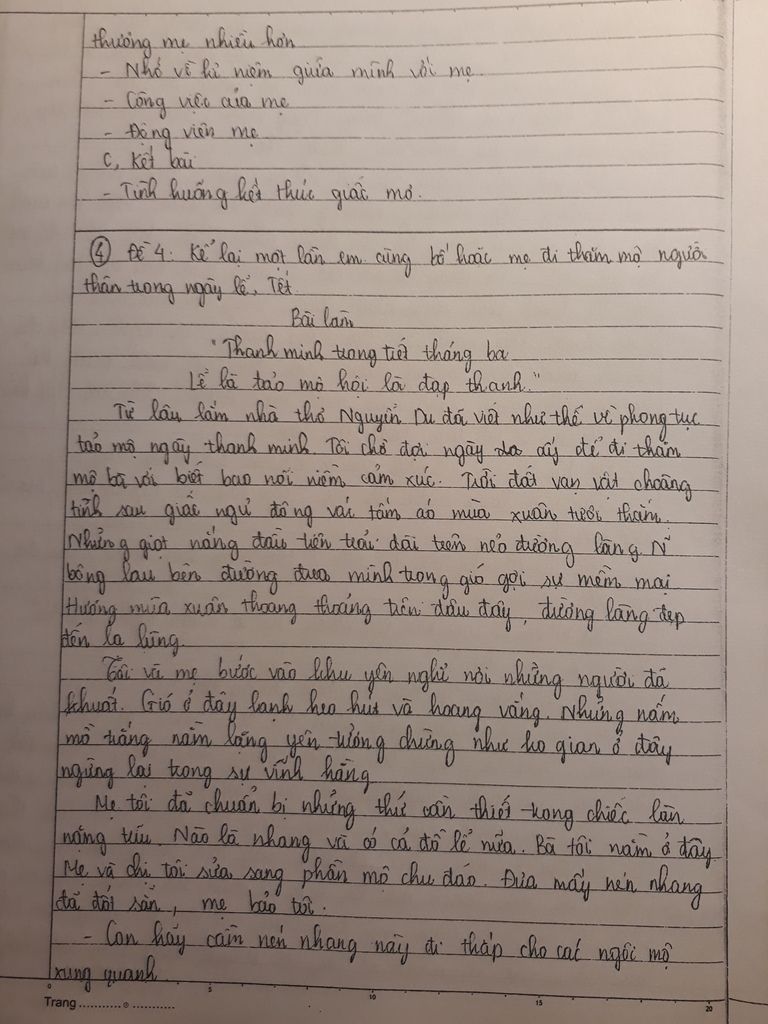 thương mẹ nhiều hơn
- Nhớ về kỉ niệm giữa mình với mẹ.
- Công việc của mẹ
- Động viên mẹ
C, Kết bài
- Tình huống kết thúc giấc mơ.
④ Đề 4: Kể lại một lần em cùng bố hoặc mẹ đi thăm mộ người
thân trong ngày lễ, Tết.
Bài làm
"Thanh minh trong tiết tháng ba
Lễ là tảo mộ hội là đạp thanh."
Từ lâu lắm nhà thơ Nguyễn Du đã viết như thế về phong tục
tảo mộ ngày thanh minh. Tôi chờ đợi ngày ấy để đi thăm
mộ bà với biết bao nỗi niềm cảm xúc. Trời đất vạn vật choàng
tỉnh sau giấc ngủ đông với tấm áo mùa xuân tươi thắm.
Những giọt nắng đầu tiên trải dài trên nẻo đường làng. N
bông lau bên đường đưa mình trong gió gợi sự mềm mại
Hương mùa xuân thoang thoảng trên đâu đây, đường làng đẹp
đến lạ lùng.
Tôi và mẹ bước vào khu yên nghỉ nơi những người đã
khuất. Gió ở đây lạnh heo hút và hoang vắng. Những nấm
mồ trắng nằm lặng yên tưởng chừng như ko gian ở đây
ngừng lại trong sự vĩnh hằng
Mẹ tôi đã chuẩn bị những thứ cần thiết trong chiếc làn
nặng trĩu. Nào là nhang và có cả đồ lễ nữa. Bà tôi nằm ở đây.
Mẹ và chị tôi sửa sang phần mộ chu đáo. Đưa mấy nén nhang
đã đốt sẵn, mẹ bảo tôi:
- Con hãy cầm nén nhang này đi thắp cho các ngôi mộ
xung quanh
0 5 10 15 20
Trang